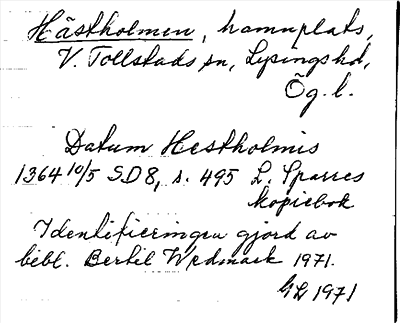 Hästholmen, hamnplats,
V. Tollstads sn, Lysings hd,
Ög. l.
Datum Hestholmis
1364 10/5 SD 8, s. 495 L. Sparres
kopiebok
Identifieringen gjord av
bibl. Bertil Wedmark 1971.
GL 1971